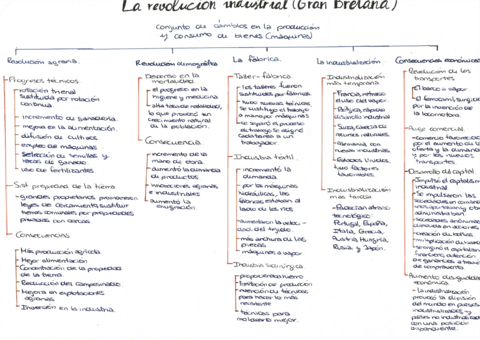 La revolución industrial (Gran Bretaña)
conjunto de cambios en la producción
y consumo de bienes (máquinas)
Revolución agraria.
Progresos técnicos
rotación trienal
sustituida por rotación
continua
incremento de ganadería.
mejora en la alimentación.
difusión de cultivos
empleo de máquinas
Selección de semillas y
razas de ganado
uso de fertilizantes
Sist propiedad de la tierra
grandes propietarios promovieron
tierras comunales por propiedades
privadas con cercas.
Consecuencias
Más producción agrícola
Mejor alimentación.
Concentración de la propiedad
de la tierra.
Reducción del campesinado.
Mejora en explotaciones
agrarias
Inversión en la industria.
Revolución demográfica
Descenso en la
mortalidad
el progreso en la
higiene y medicina
alta tasa de natalidad,
lo que provocó un
crecimiento natural
de la población.
Consecuencia
incremento de la
mano de obra.
aumentó la demanda
de productos.
innovaciones agrarias
e industriales
aumentó la
emigración
La fábrica.
Taller-fábrica
los talleres fueron
sustituidos por fábricas
tuvo nuevas técnicas
se sustituyó el trabajo
a mano por máquinas
se separó el puesto
el trabajo se asignó
cada tarea a un
trabajador
Industria textil.
incrementó la
demanda
por las máquinas
hidráulicas, las
fábricas estaban al
lado de los ríos
aumentaron la velo-
cidad del tejido
más anchura de las
piezas
máquinas a vapor
Industria siderúrgica
proporcionaba hierro
limitación de producción
invención de técnicas
para hacerlo más
resistente
técnicas para
moldearlo mejor.
La industrialización
Industrialización
más temprana.
Francia, retraso
Bélgica, rápido
desarrollo industrial
Suiza, carencia de
recursos naturales
Alemania, con
nuevas industrias
Estados Unidos,
tuvo factores
favorables
Industrialización
más tardía
tecnológico
Portugal, España,
Italia, Grecia,
Austria, Hungría,
Rusia, y Japón.
Consecuencias económicas
Revolución de los
transportes
El barco a vapor
El ferrocarril, surgió
por la invención de
la locomotora
Auge comercial.
comercio favorecido
por el aumento de la
oferta y la demanda
y por los nuevos
transportes.
Desarrollo del capital
impulsó el capitalismo
industrial
sociedades anónimas
creación de bolsas
surgió el capitalismo
Aumento desigualdad
económica.
la industrialización
provocó la división
del mundo en países
industrializados, y
países no industrializados
con una posición